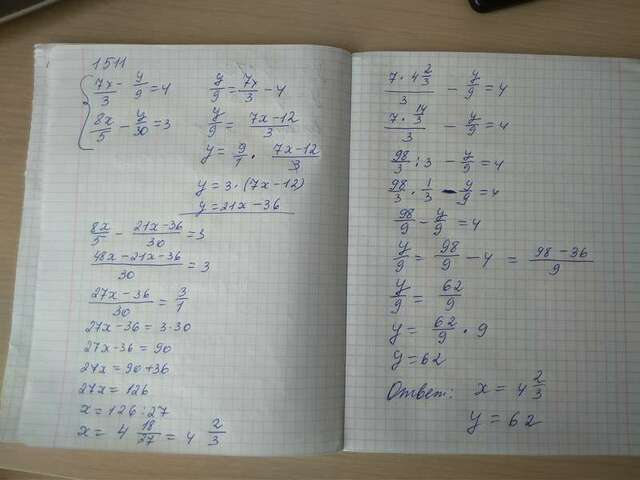 1511
7x/3 - y/9 = 4
8x/5 - y/30 = 3
y/9 = 7x/3 - 4
y/9 = 7x-12/3
y = 9/1 · 7x-12/3
y = 3 · (7x-12)
y = 21x - 36
8x/5 - 21x-36/30 = 3
48x-21x-36/30 = 3
27x-36/30 = 3/1
27x-36 = 3·30
27x-36 = 90
27x = 90+36
27x = 126
x = 126:27
x = 4 18/27 = 4 2/3
7·4 2/3/3 - y/9 = 4
7·14/3/3 - y/9 = 4
98/3 : 3 - y/9 = 4
98/3 · 1/3 - y/9 = 4
98/9 - y/9 = 4
y/9 = 98/9 - 4 = 98-36/9
y/9 = 62/9
y = 62/9 · 9
y = 62
Ответ: x = 4 2/3
y = 62